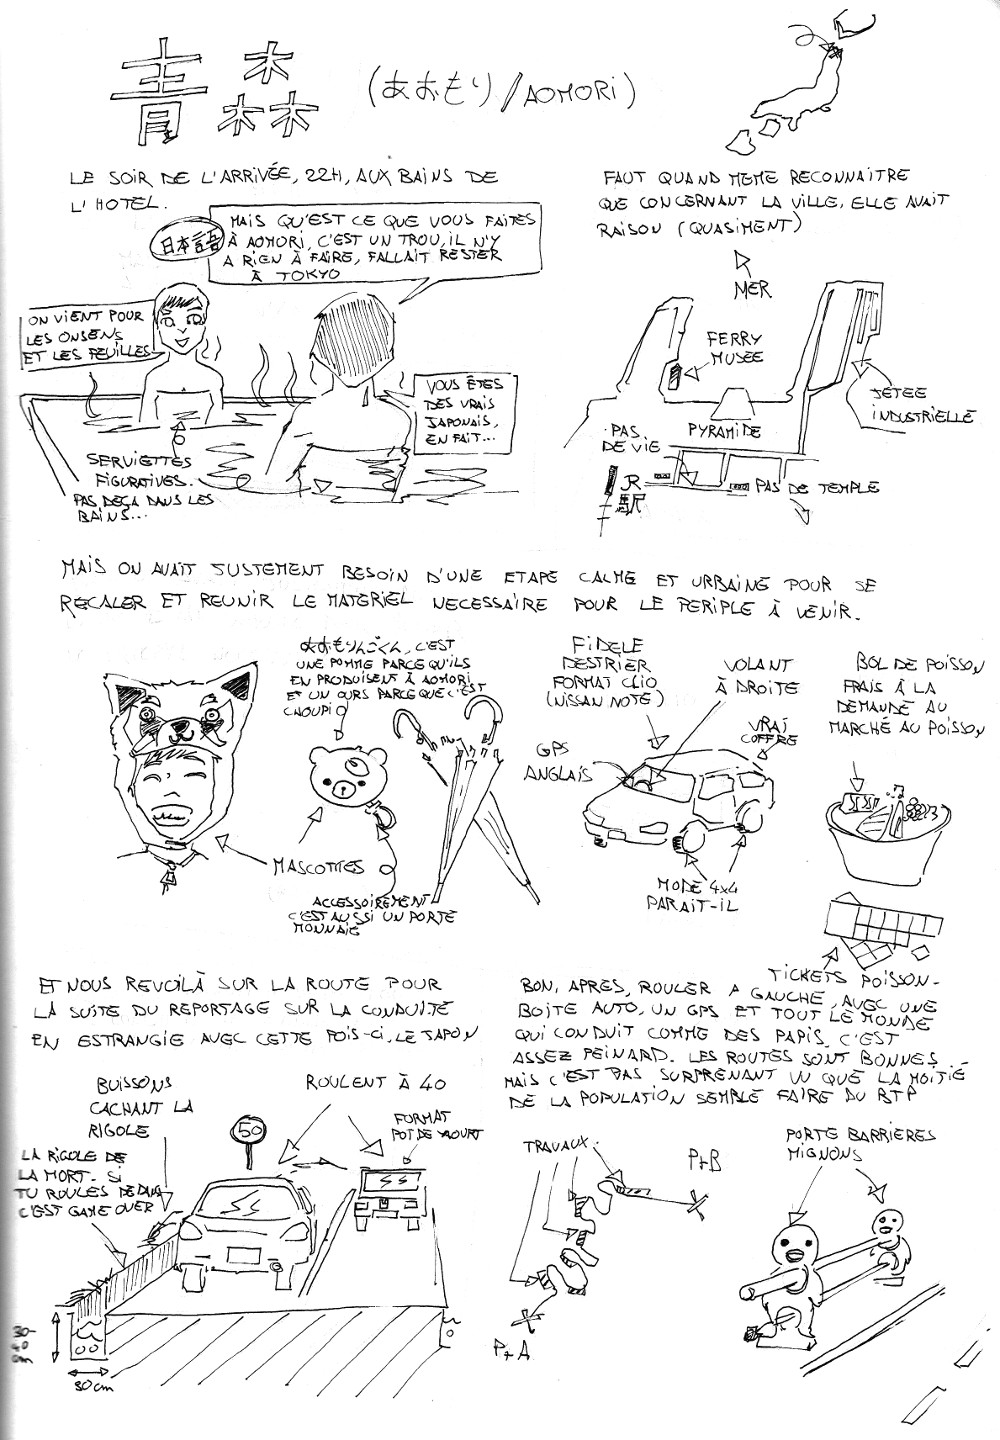 青森 (あおもり/AOMORI)
LE SOIR DE L'ARRIVÉE, 22H, AUX BAINS DE
L'HOTEL.
日本語
MAIS QU'EST CE QUE VOUS FAITES
À AOMORI, C'EST UN TROU, IL N'Y
A RIEN À FAIRE, FALLAIT RESTER
À TOKYO
ON VIENT POUR
LES ONSENS
ET LES FEUILLES
VOUS ÊTES
DES VRAIS
JAPONAIS,
EN FAIT...
SERVIETTES
FIGURATIVES.
PAS DE ÇA DANS LES
BAINS...
FAUT QUAND MEME RECONNAITRE
QUE CONCERNANT LA VILLE, ELLE AVAIT
RAISON (QUASIMENT)
MER
FERRY
MUSÉE
JETÉE
INDUSTRIELLE
PAS
DE VIE
PYRAMIDE
JR
駅
PAS DE TEMPLE
MAIS ON AVAIT JUSTEMENT BESOIN D'UNE ETAPE CALME ET URBAINE POUR SE
RECALER ET REUNIR LE MATERIEL NECESSAIRE POUR LE PERIPLE À VENIR.
あおもりんごくん, C'EST
UNE POMME PARCE QU'ILS
EN PRODUISENT À AOMORI
ET UN OURS PARCE QUE C'EST
CHOUPI
MASCOTTES
ACCESSOIREMENT
C'EST AUSSI UN PORTE
MONNAIE
FIDELE
DESTRIER
FORMAT CLIO
(NISSAN NOTE)
VOLANT
À DROITE
VRAI
COFFRE
GPS
ANGLAIS
MODE 4x4
PARAIT-IL
BOL DE POISSON
FRAIS À LA
DEMANDE AU
MARCHÉ AU POISSON
TICKETS POISSON
ET NOUS REVOILÀ SUR LA ROUTE POUR
LA SUITE DU REPORTAGE SUR LA CONDUITE
EN ESTRANGIE AVEC CETTE FOIS-CI, LE JAPON
BON, APRES, ROULER A GAUCHE, AVEC UNE
BOITE AUTO, UN GPS ET TOUT LE MONDE
QUI CONDUIT COMME DES PAPIS, C'EST
ASSEZ PEINARD. LES ROUTES SONT BONNES
MAIS C'EST PAS SURPRENANT VU QUE LA MOITIÉ
DE LA POPULATION SEMBLE FAIRE DU BTP
BUISSONS
CACHANT LA
RIGOLE
LA RIGOLE DE
LA MORT. SI
TU ROULES DEDANS
C'EST GAME OVER
ROULENT À 40
50
FORMAT
POT DE YAOURT
30-
40
cm
30 cm
TRAVAUX
Pt B
Pt A
PORTE BARRIERES
MIGNONS